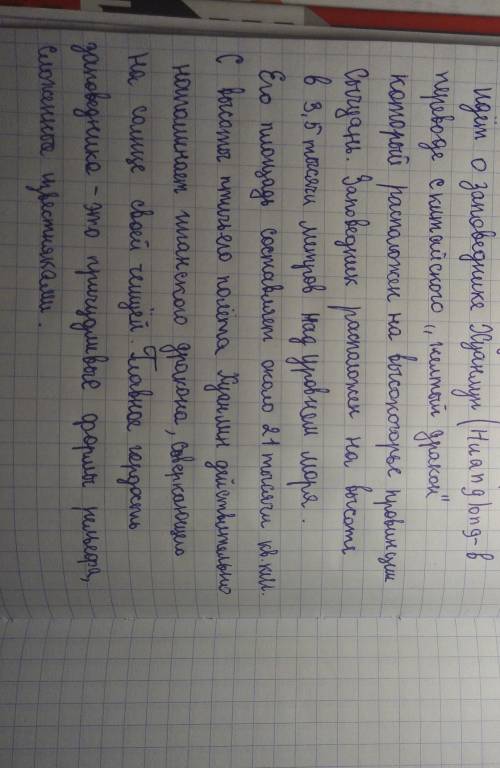 идёт о заповеднике Хуанлун (Huanglong - в
переводе с китайского „желтый дракон"
который расположен на высокогорье провинции
Сычуань. Заповедник расположен на высоте
в 3,5 тысячи метров над уровнем моря.
Его площадь составляет около 21 тысячи кв. км.
С высоты птичьего полёта Хуанлун действительно
напоминает гиганского дракона, сверкающего
на солнце своей чешуёй. Главное гордость
заповедника - это причудливые формы рельефа,
сложенные известняками.